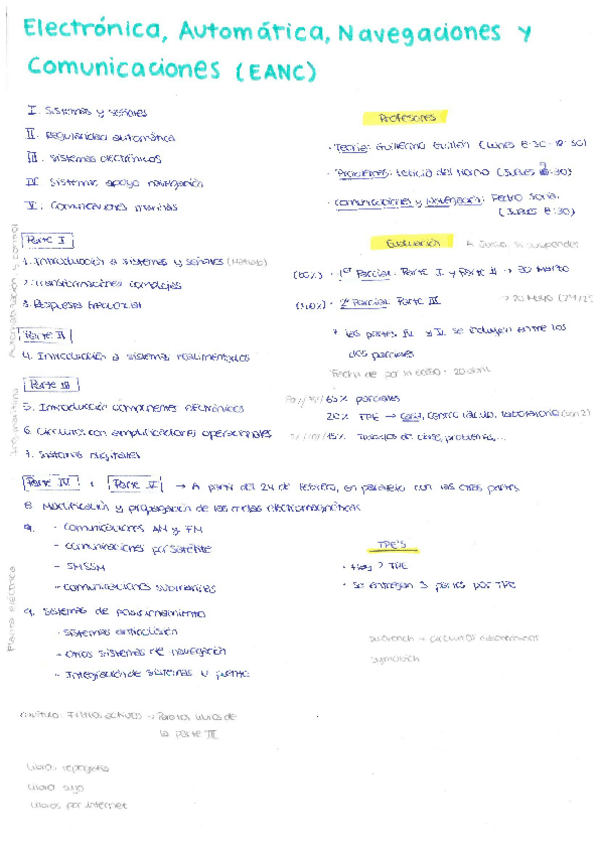 Electrónica, Automática, Navegaciones y
Comunicaciones (EANC)
I. Sistemas y señales
II. Regularidad automática
III. Sistemas electrónicos
IV. Sistemas apoyo navegación
V. Comunicaciones marinas
Profesores
· Teoría: Guillermo Guillén (Lunes 8:30-10:30)
· Problemas: Leticia del (Jueves
· Comunicaciones y Navegación: Pedro Soria.
(Jueves 8:30)
Automatización y control
Parte I
1. Introducción a sistemas y señales (Matlab)
2. Transformaciones complejas
3. Respuesta frecuencial
Parte II
4. Introducción a sistemas realimentados
Evaluación A Junio si suspendes
(60%) · 1er Parcial: Parte I y Parte II → 20 Marzo
(40%) · 2º Parcial: Parte III
* las partes IV y V se incluyen entre los
dos parciales
Parte III
5. Introducción componentes electrónicos
6. Circuitos con amplificadores operacionales
7. Sistemas digitales
65% parciales
20% TPE → laboratorio
15% Trabajos de clase, problemas,...
Parte IV y Parte V → A partir del 24 de febrero, en paralelo con las otras partes
8. Modificación y propagación de las ondas electromagnéticas
9. - Comunicaciones AM y FM
- Comunicaciones por satélite
- SMSSM
- Comunicaciones submarinas
TPE's
· Hay 7 TPE
· Se entregan 3 partes por TPE
Planta eléctrica
9. Sistemas de posicionamiento
- Sistemas anticolisión
- Otros sistemas de navegación
- Integración de sistemas y puente
Capítulo: Filtros activos → Para los libros de
la parte III
Libros reprografía
Libro suyo
Libros por internet